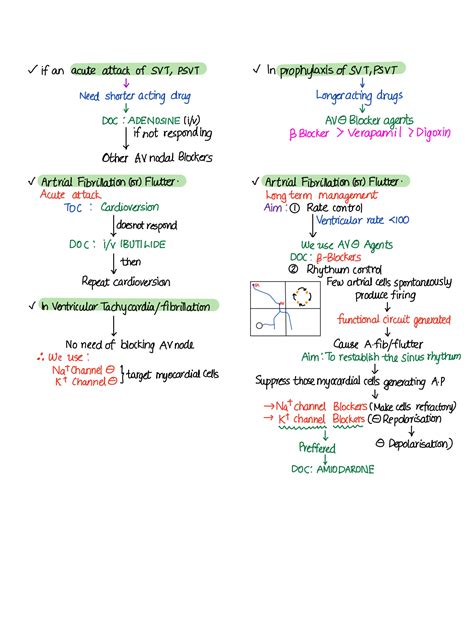 ✓ if an acute attack of SVT, PSVT
Need shorter acting drug
DOC : ADENOSINE (i/v)
if not responding
Other AV nodal Blockers
✓ Artrial Fibrillation (or) Flutter.
Acute attack
TOC : Cardioversion
doesnot respond
DOC : i/v IBUTILIDE
then
Repeat cardioversion
✓ In Ventricular Tachycardia/fibrillation
No need of blocking AV node
∴ We use :
Na⁺ Channel ⊖
K⁺ Channel ⊖
} target myocardial cells
✓ In prophylaxis of SVT, PSVT
Longer acting drugs
AV ⊖ Blocker agents
β Blocker > Verapamil > Digoxin
✓ Artrial Fibrillation (or) Flutter.
Long term management
Aim : ① Rate control
Ventricular rate <100
We use AV ⊖ Agents
DOC : β-Blockers
② Rhythum control
Few artrial cells spontaneously
produce firing
functional circuit generated
Cause A-fib/flutter
Aim : To restablish the sinus rhythum
Suppress those myocardial cells generating A.P
→ Na⁺ channel Blockers (Make cells refractory)
→ K⁺ channel Blockers (⊖ Repolorisation
⊖ Depolarisation)
Preffered
DOC : AMIODARONE